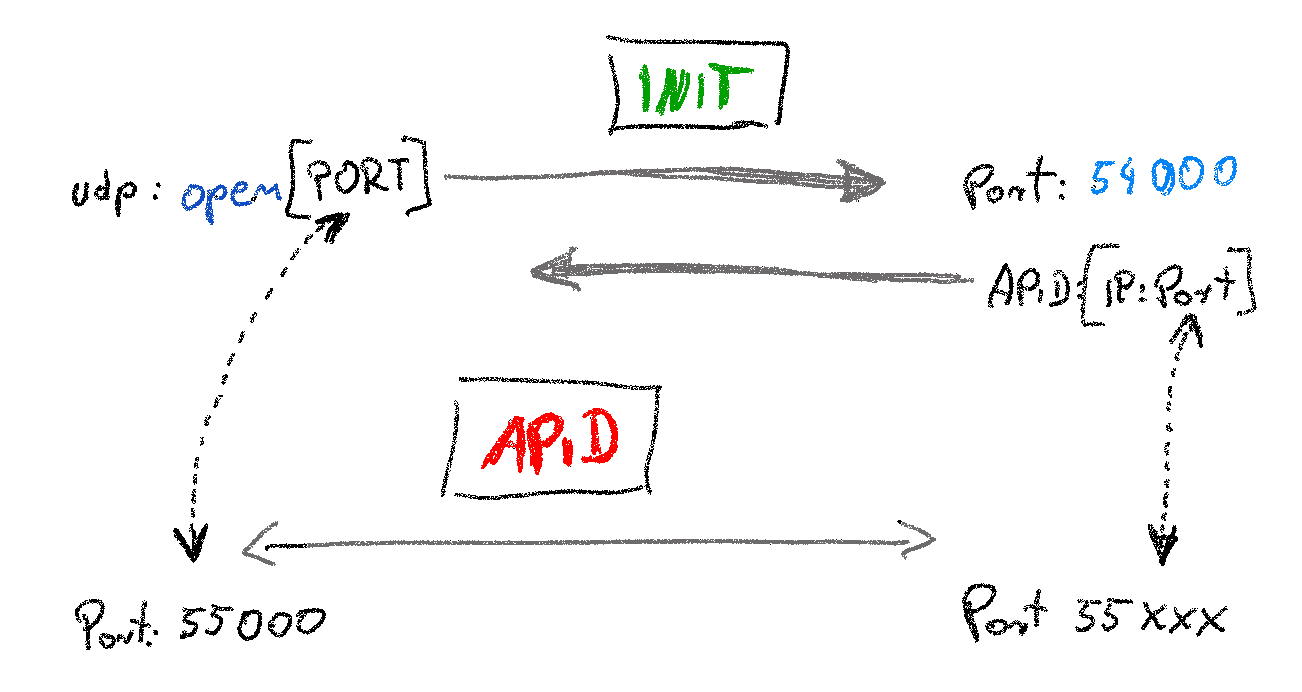 INIT
udp: open[PORT]
Port: 54000
APiD:[iP:Port]
APiD
Port: 55000
Port 55xxx